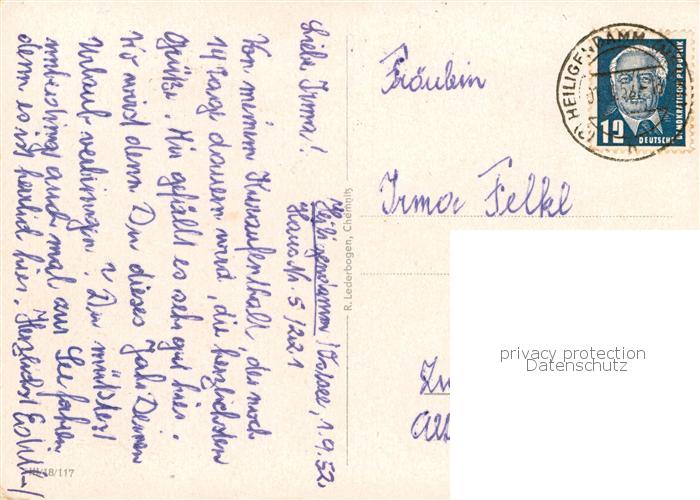 Heiligendamm/Ostsee, 1.9.52.
Haus Nr. 5/221
Liebe Irma!
Von meinem Kuraufenthalt, der noch
14 Tage dauern wird, die herzlichsten
Grüße. Hier gefällt es sehr gut hier.
Wo wirst denn Du dieses Jahr Deinen
Urlaub verbringen? Du müßtest
unbedingt auch mal zur See fahren
denn es ist herrlich hier. Herzlichst
R. Lederbogen, Chemnitz
III/18/117
Fräulein
Irma Felkl
HEILIGENDAMM
12
DEUTSCHE
DEMOKRATISCHE REPUBLIK
privacy protection
Datenschutz